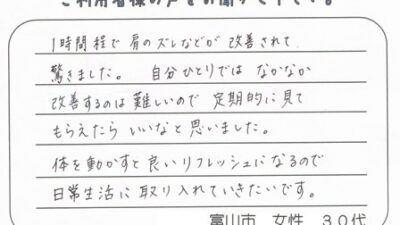 ご利用者様の声をお聞かせ下さい。
1時間程で肩のズレなどが改善されて
驚きました。 自分ひとりでは なかなか
改善するのは難しいので 定期的に見て
もらえたら いいなと思いました。
体を動かすと良いリフレッシュになるので
日常生活に取り入れていきたいです。
富山市 女性 30代